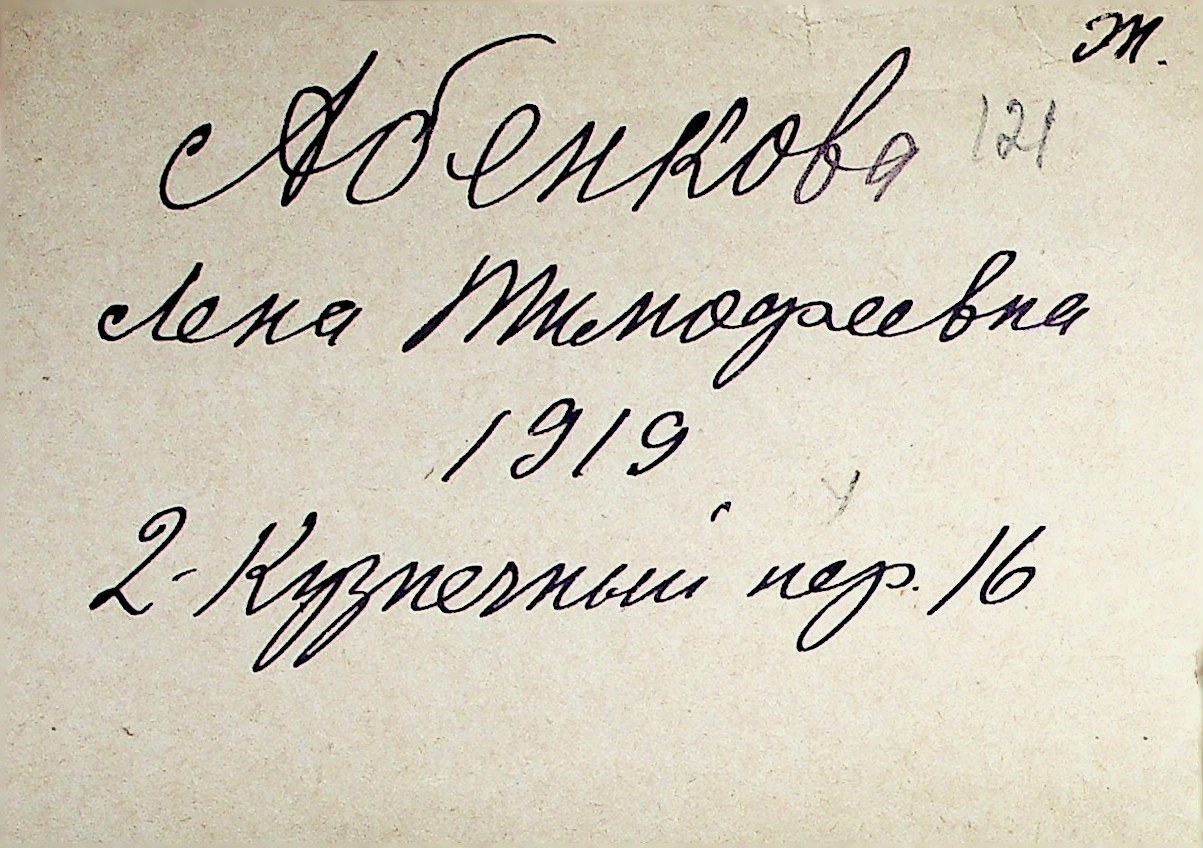 т.
Абенкова 121
Лена Тимофеевна
1919
2-Кузнечный пер. 16